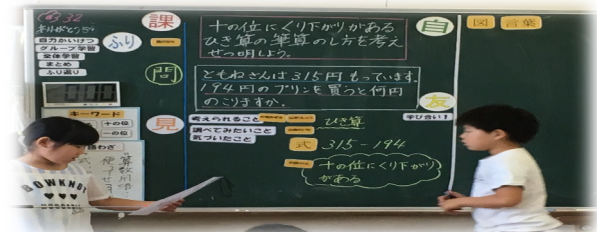 課
十の位にくり下がりがある
ひき算の筆算のし方を考え
せつ明しよう。
自力かいけつ
グループ学習
全体学習
まとめ
ふり返り
ふり
問
ともねさんは315円もっています。
194円のプリンを買うと何円
のこりますか。
キーワード
十の位
一の位
見
考えられること
調べてみたいこと
気づいたこと
ひき算
式 315-194
十の位にくり下がり
がある
自
図 言葉
友
学び合い!